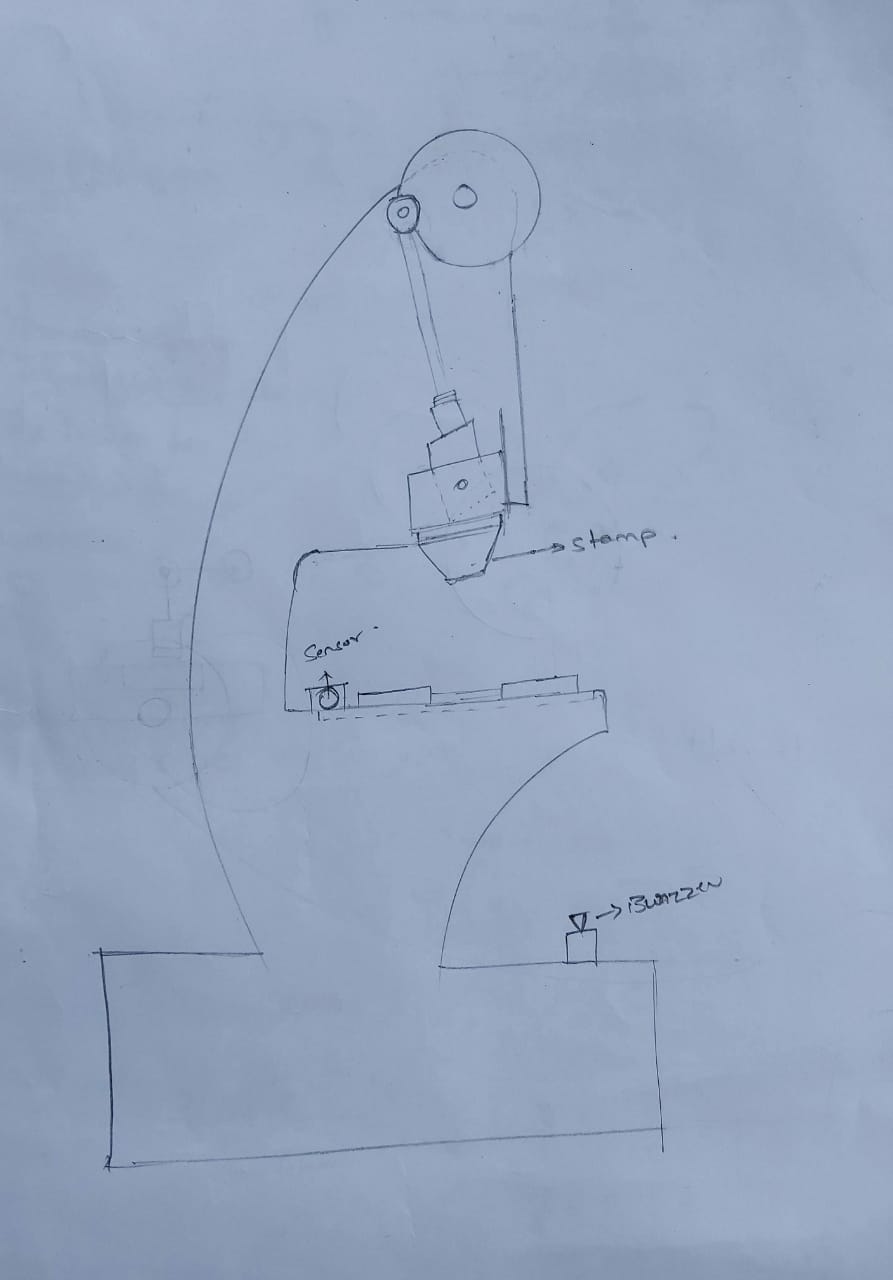 stamp.
Sensor.
Buzzer